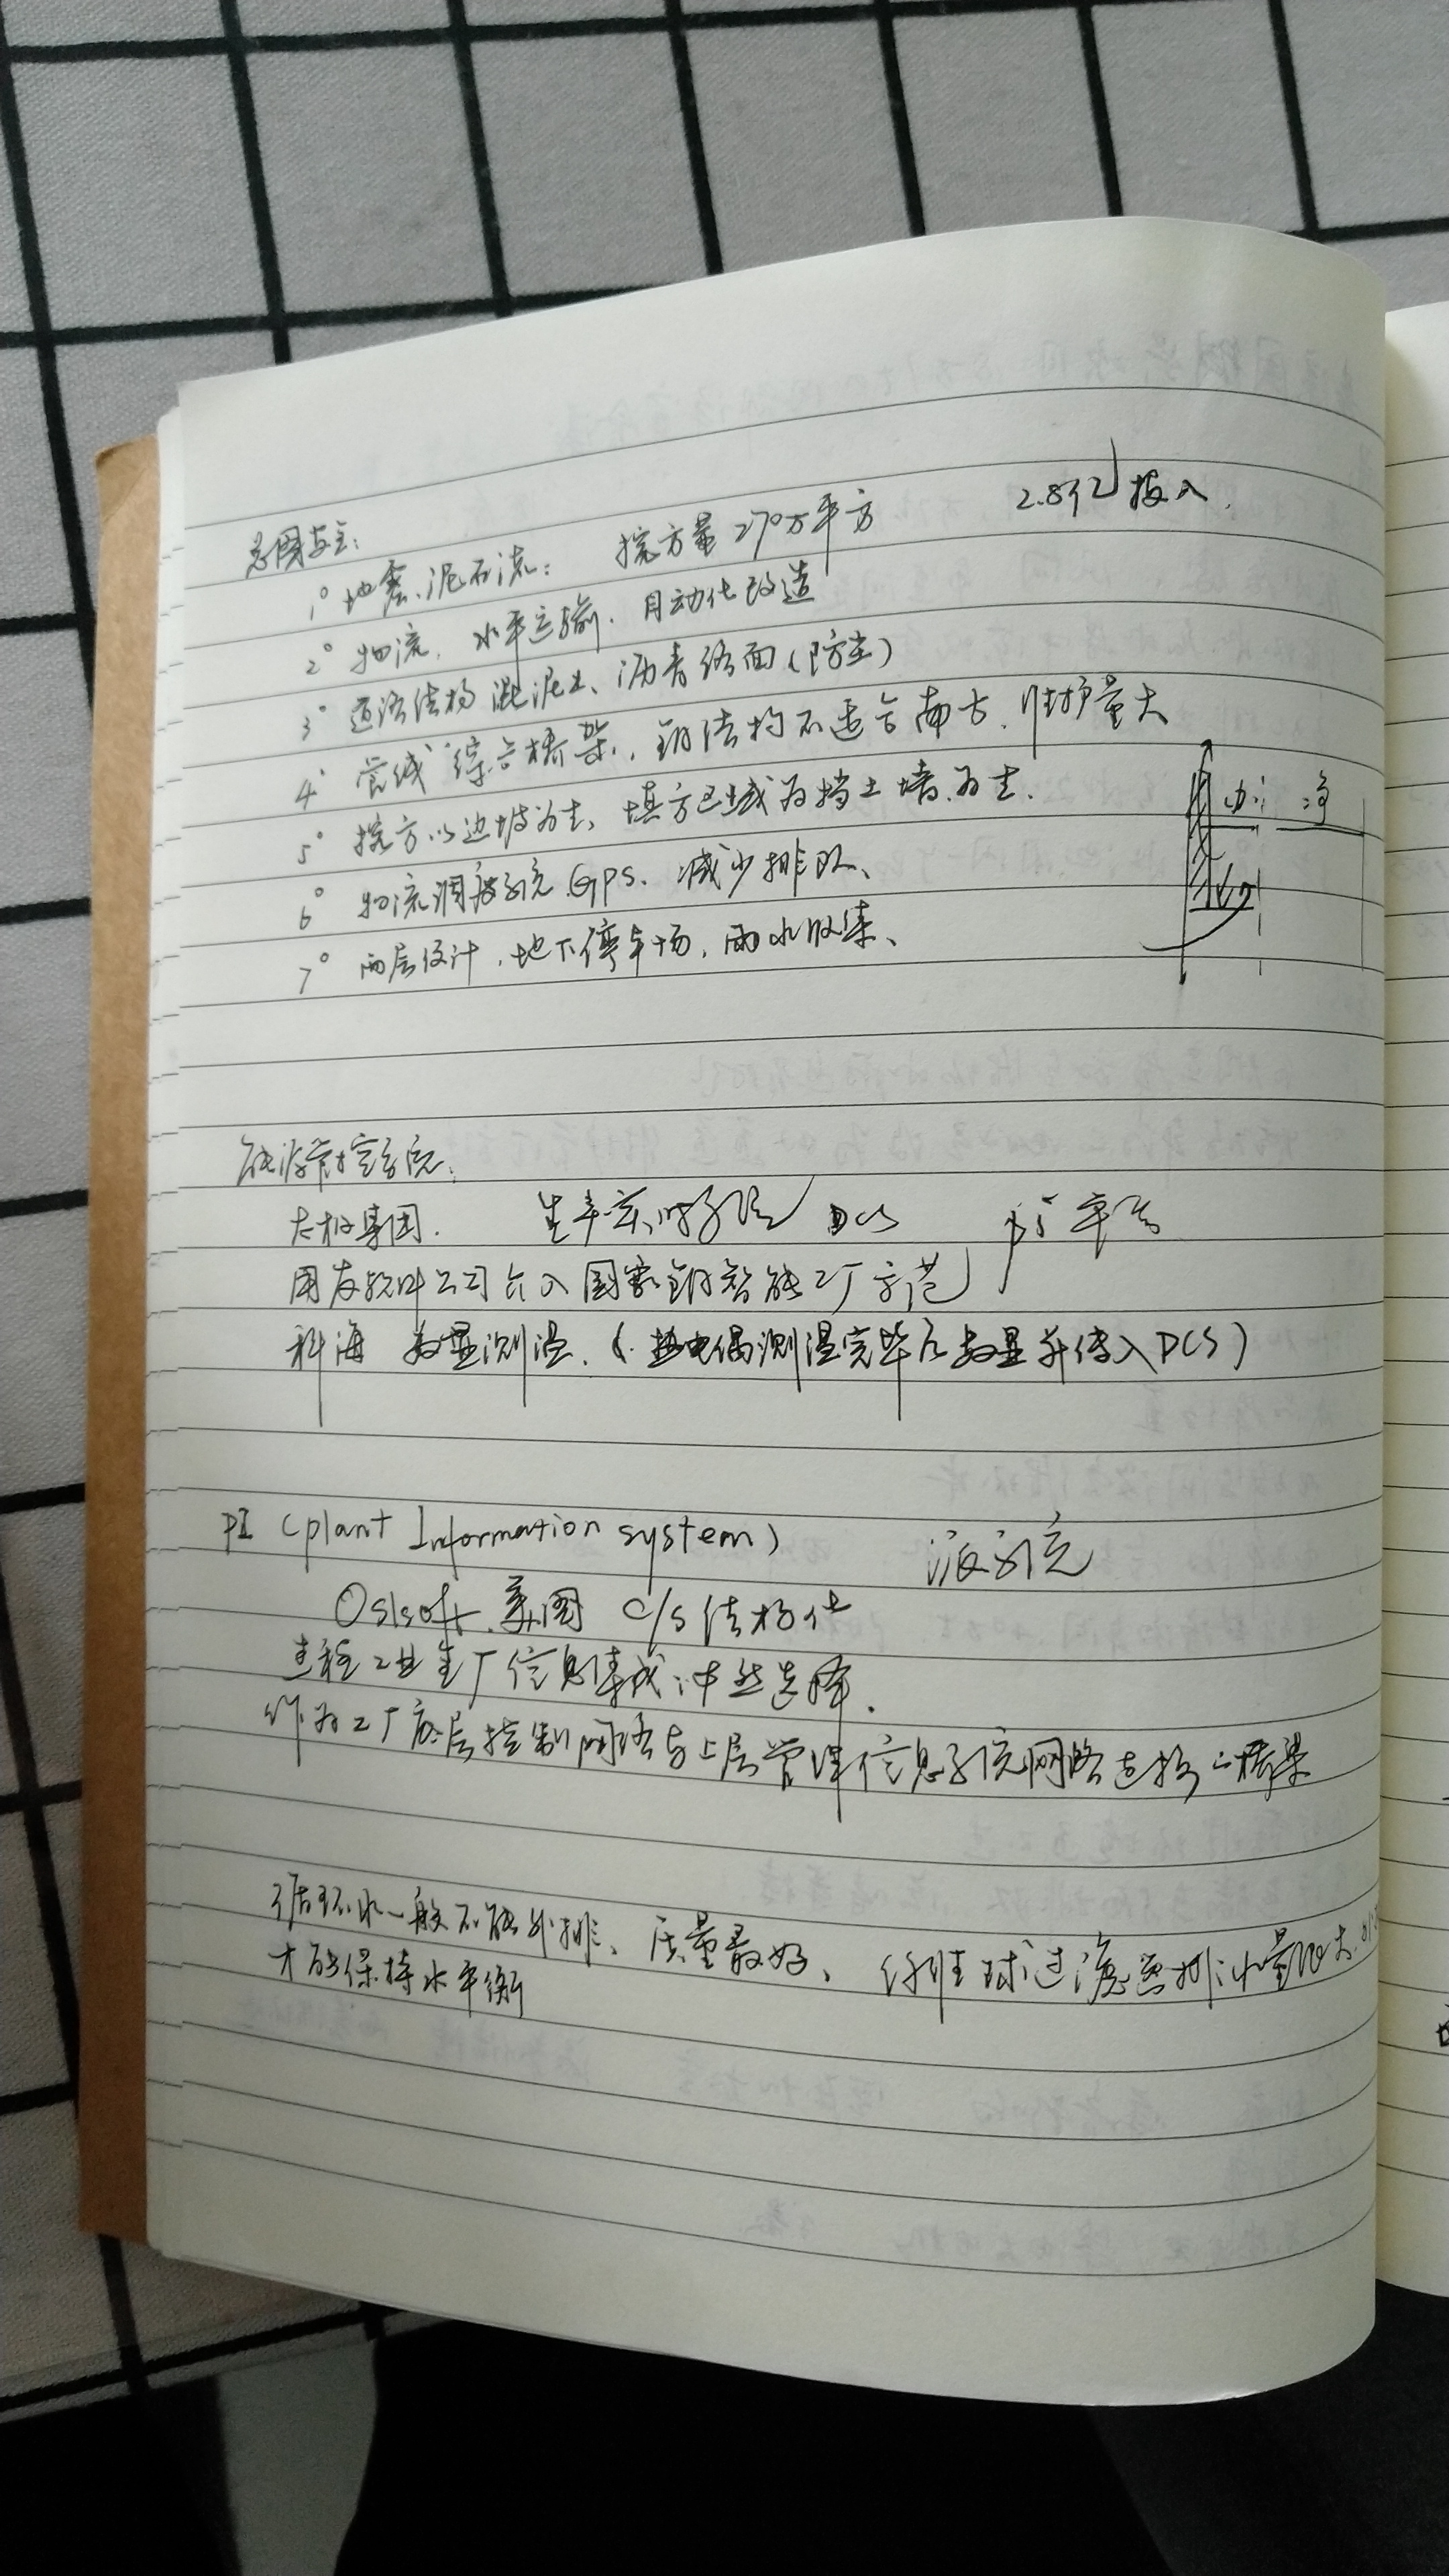 2.8亿投入.
1° 地震、泥石流: 挖方量270万平方
2° 物流, 水平运输, 自动化改造
3° 道路结构 混泥土、沥青路面(防尘)
4° 管线 综合桥架, 钢结构不适合南方, 维护量大
5° 挖方以边坡为主, 填方区域为挡土墙为主.
6° 物流调度系统 GPS. 减少排队、
7° 两层设计, 地下停车场, 雨水收集、
能源管控系统:
太极集团. 生产实时系统 DCS
用友软件公司 入国家钢智能工厂示范
科海 数显测温. (热电偶测温完毕后数显并传入DCS)
PI (plant Information system) 派系统
OsIsoft. 美国 C/S结构化
过程工业生厂信息集成 必然选择.
作为工厂底层控制网络与上层管理信息系统网络连接的桥梁
循环水一般不能外排、质量最好、 纤维球过滤器排水量
才能保持水平衡